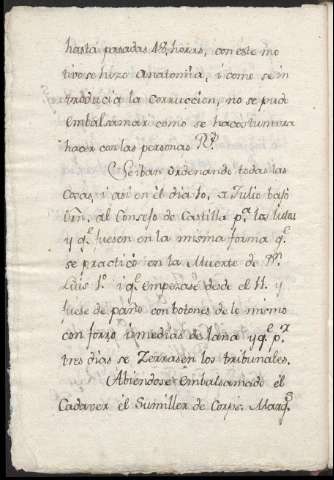 hasta pasadas 48, horas, con este mo
tivo se hizo Anatomia, i come se in
troducia la Corrucion, no se pudo
embalsamar como se hacostumbra
hacer con las personas R.s
Se iban ordenando todas las
Cosas, i asi en el dia 10, Julio bajo
al Consejo de Castilla p.a los lutos
y q.e fuesen en la misma forma q.e
se practicó en la Muerte de
Luis 1.o i q.e empezase desde el 11. y
fuese de paño con botones de lo mismo
con forro, i medias de lana y q.e p.r
tres dias se Zerrasen los tribunales.
Abiendose embalsamado el
Cadaver el Sumiller de Corps. Marq.s